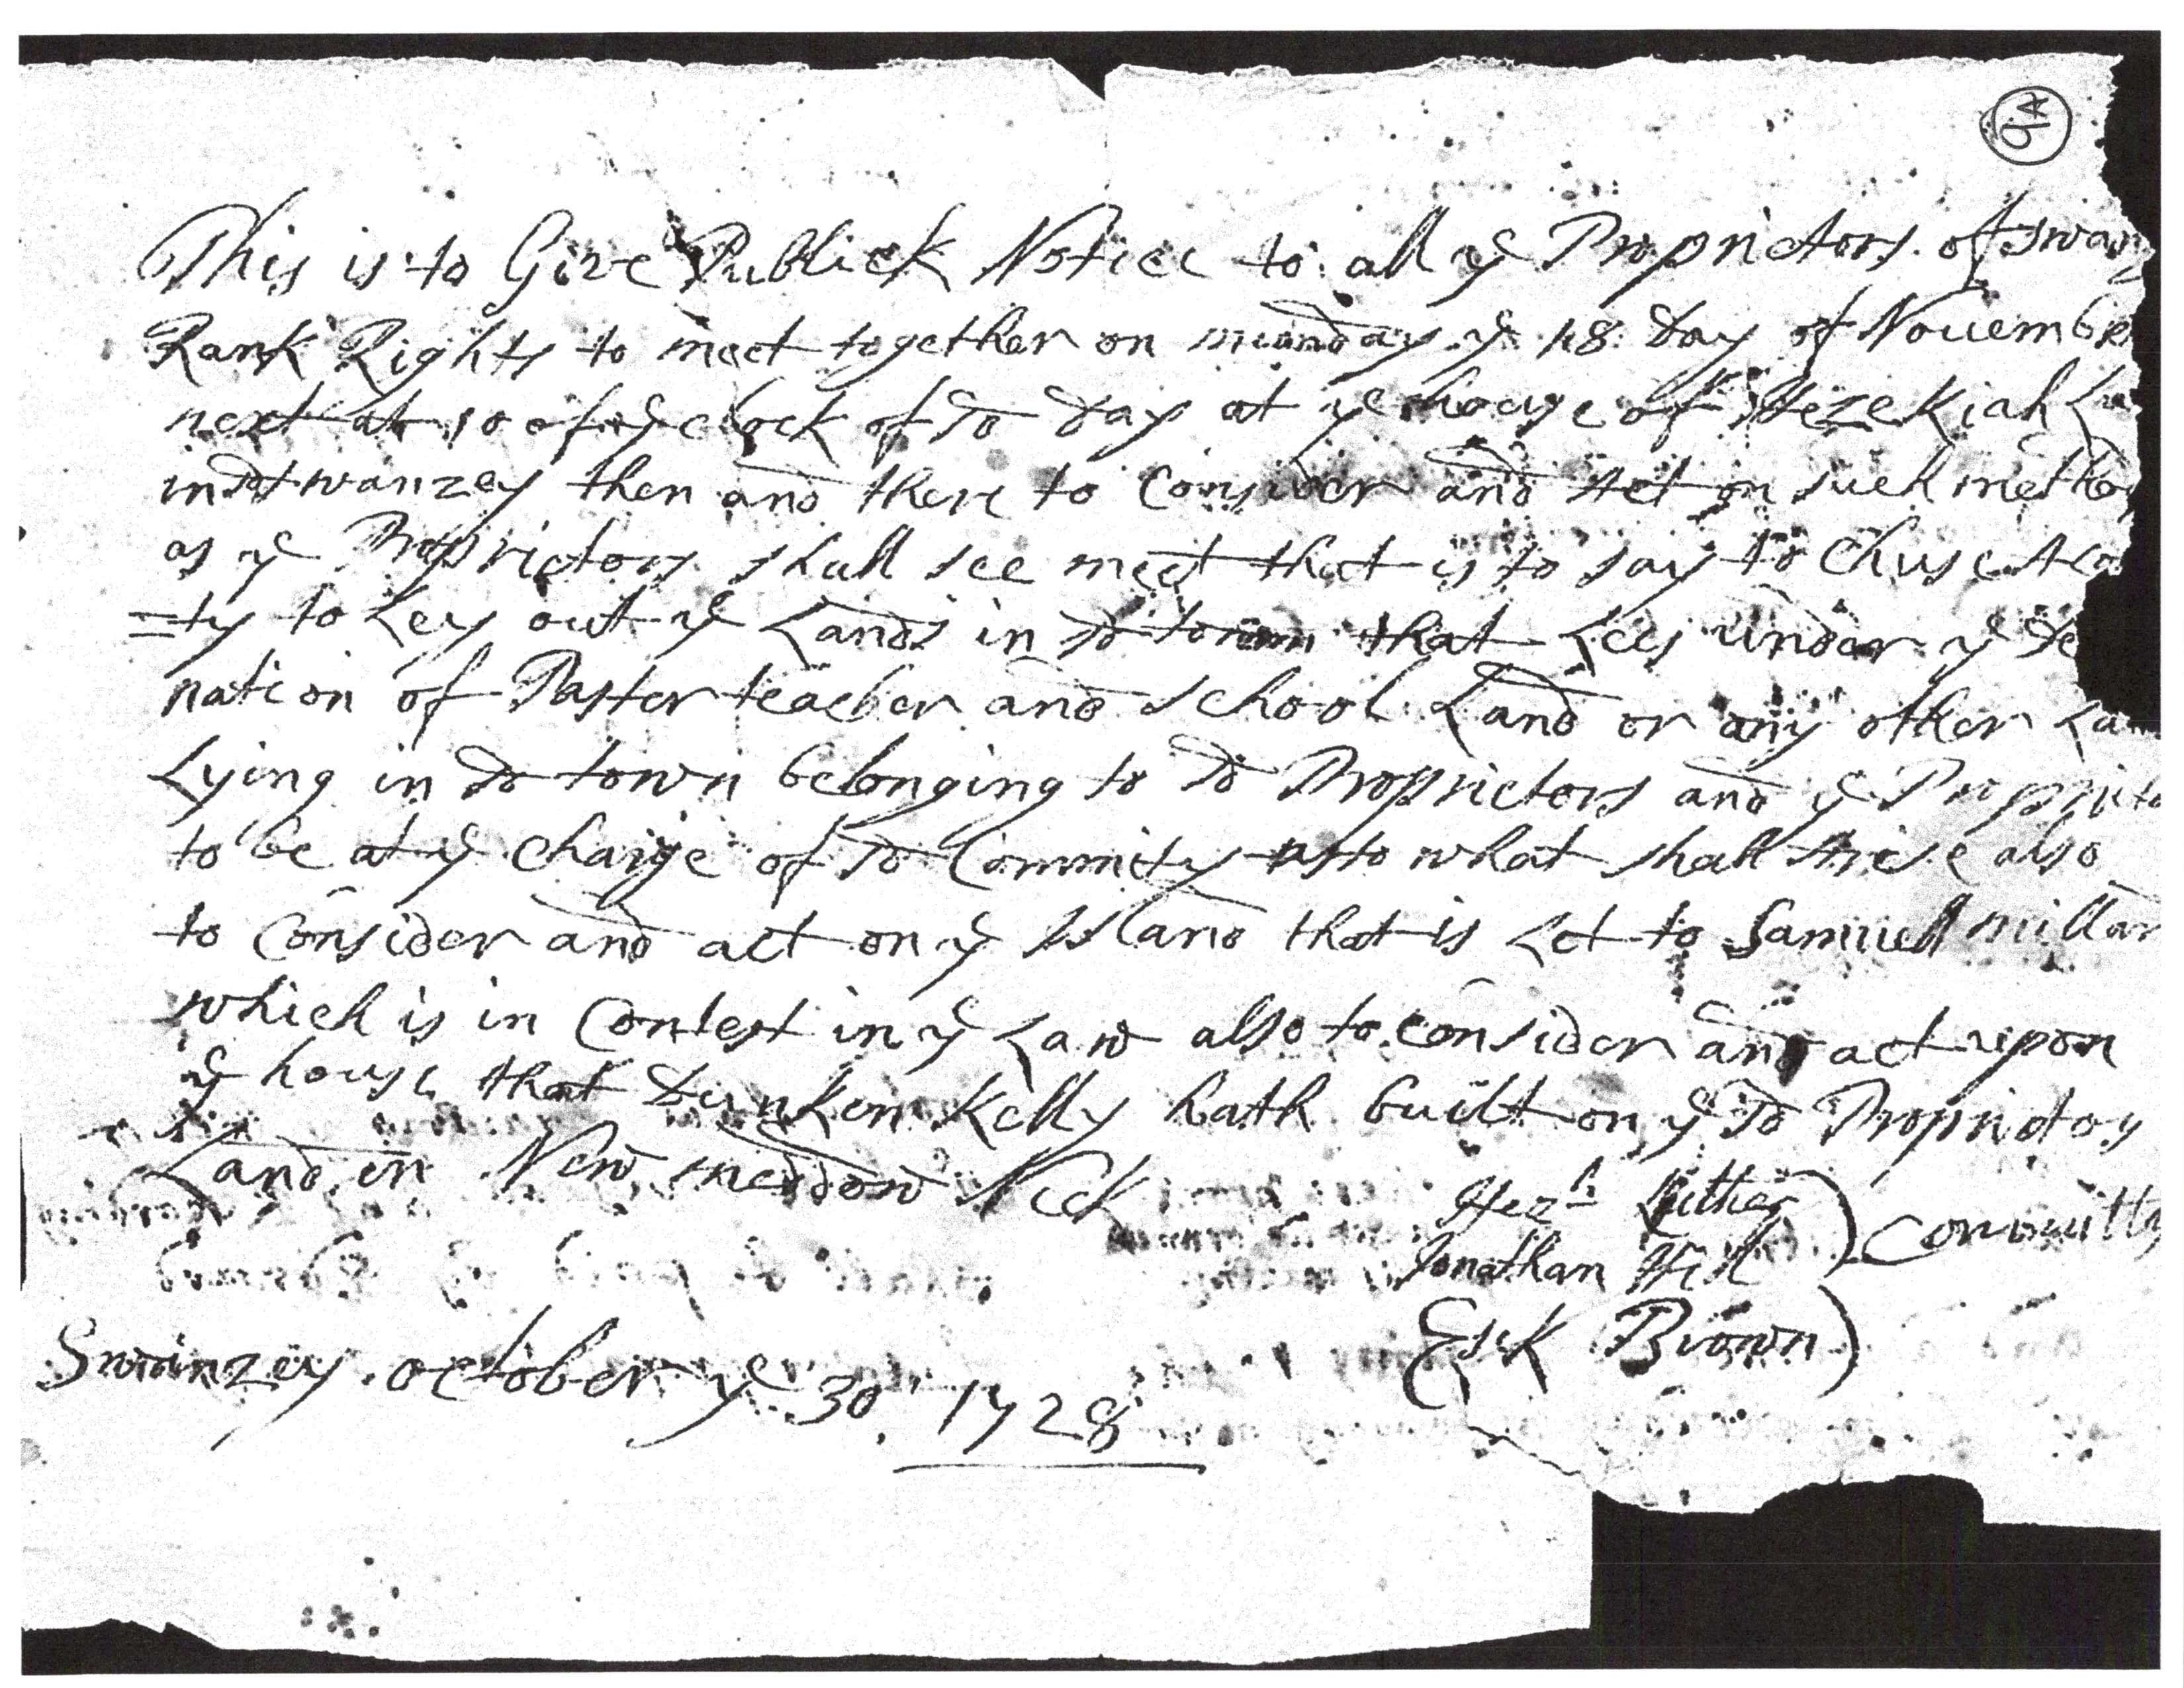 This is to Give Publick Notice to all ye Proprietors of Swanz
Rank Rights to meet together on munday ye 18 Day of Nouembe
next at 10 of ye clock of sd Day at ye house of Hezekiah Lu
in Swanzey then and there to Consider and Act on such metho
as ye Proprietors shall see meet that is to say to Chuse A Co
=ty to Ley out ye Lands in sd town that Lees under ye De
nation of Paster teacher and School Land or any other La
Lying in sd town belonging to sd Proprietors and ye Proprieto
to be at ye charge of sd Committy as to what shall Arise also
to Consider and act on ye Island that is Let to Samuell millar
which is in Contest in ye Law also to consider and act upon
ye house that Dunken Kelly hath built on ye sd Proprietors
Land in New meddow Neck
Hezh Luther
Jonathan Hill
Committy
Esek Brown
Swanzey october ye 30 1728